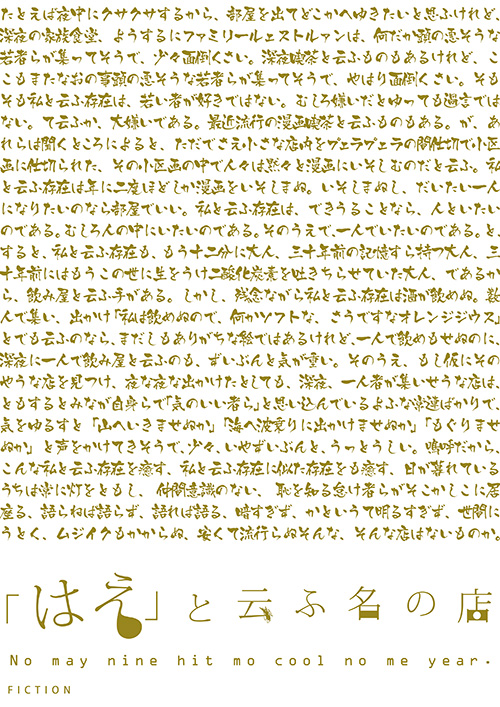 たとえば夜中にクサクサするから、部屋を出てどこかへゆきたいと思ふけれど、
深夜の家族食堂、ようするにファミリールェストルァンは、何だか頭の悪そうな
若者らが集ってそうで、少々面倒くさい。深夜喫茶と云ふものもあるけれど、こ
こもまたなおの事頭の悪そうな若者らが集ってそうで、やはり面倒くさい。そも
そも私と云ふ存在は、若い者が好きではない。むしろ嫌いだとゆっても過言では
ない。て云ふか、大嫌いである。最近流行の漫画喫茶と云ふものもある。が、あ
れらは聞くところによると、ただでさえ小さな店内をヴェラヴェラの間仕切で小区
画に仕切られた、その小区画の中で人々は黙々と漫画にいそしむのだと云ふ。私
と云ふ存在は年に二度ほどしか漫画をいそしまぬ。いそしまぬし、だいたい一人
になりたいのなら部屋でいい。私と云ふ存在は、できうることなら、人といたい
のである。むしろ人の中にいたいのである。そのうえで、一人でいたいのである。と、
すると、私と云ふ存在も、もう十二分に大人、三十年前の記憶すら持つ大人、三
十年前にはもうこの世に生をうけ二酸化炭素を吐きちらせていた大人、であるか
ら、飲み屋と云ふ手がある。しかし、残念ながら私と云ふ存在は酒が飲めぬ。数
人で集い、出かけ「私は飲めぬので、何かソフトな、さうですなオレンジジウス」
とでも云ふのなら、まだしもありがちな絵ではあるけれど、一人で飲めもせぬのに、
深夜に一人で飲み屋と云ふのも、ずいぶんと気が重い。そのうえ、もし仮にその
やうな店を見つけ、夜な夜な出かけたとしても、深夜、一人者が集いせうな店は、
ともするとみなが自身らで「気のいい者ら」と思い込んでいるよふな常連ばかりで、
気をゆるすと「山へいきませぬか」「海へ波乗りに出かけませぬか」「もぐりませ
ぬか」と声をかけてきそうで、少々、いやずいぶんと、うっとうしい。嗚呼だから、
こんな私と云ふ存在を癒す、私と云ふ存在に似た存在をも癒す、日が暮れている
うちは常に灯をともし、仲間意識のない、恥を知る怠け者らがそこかしこに居
座る、語らねば語らず、語れば語る、暗すぎず、かというて明るすぎず、世間に
うとく、ムジイクもかからぬ、安くて流行らぬそんな、そんな店はないものか。
「はえ」と云ふ名の店
No may nine hit mo cool no me year.
FICTION